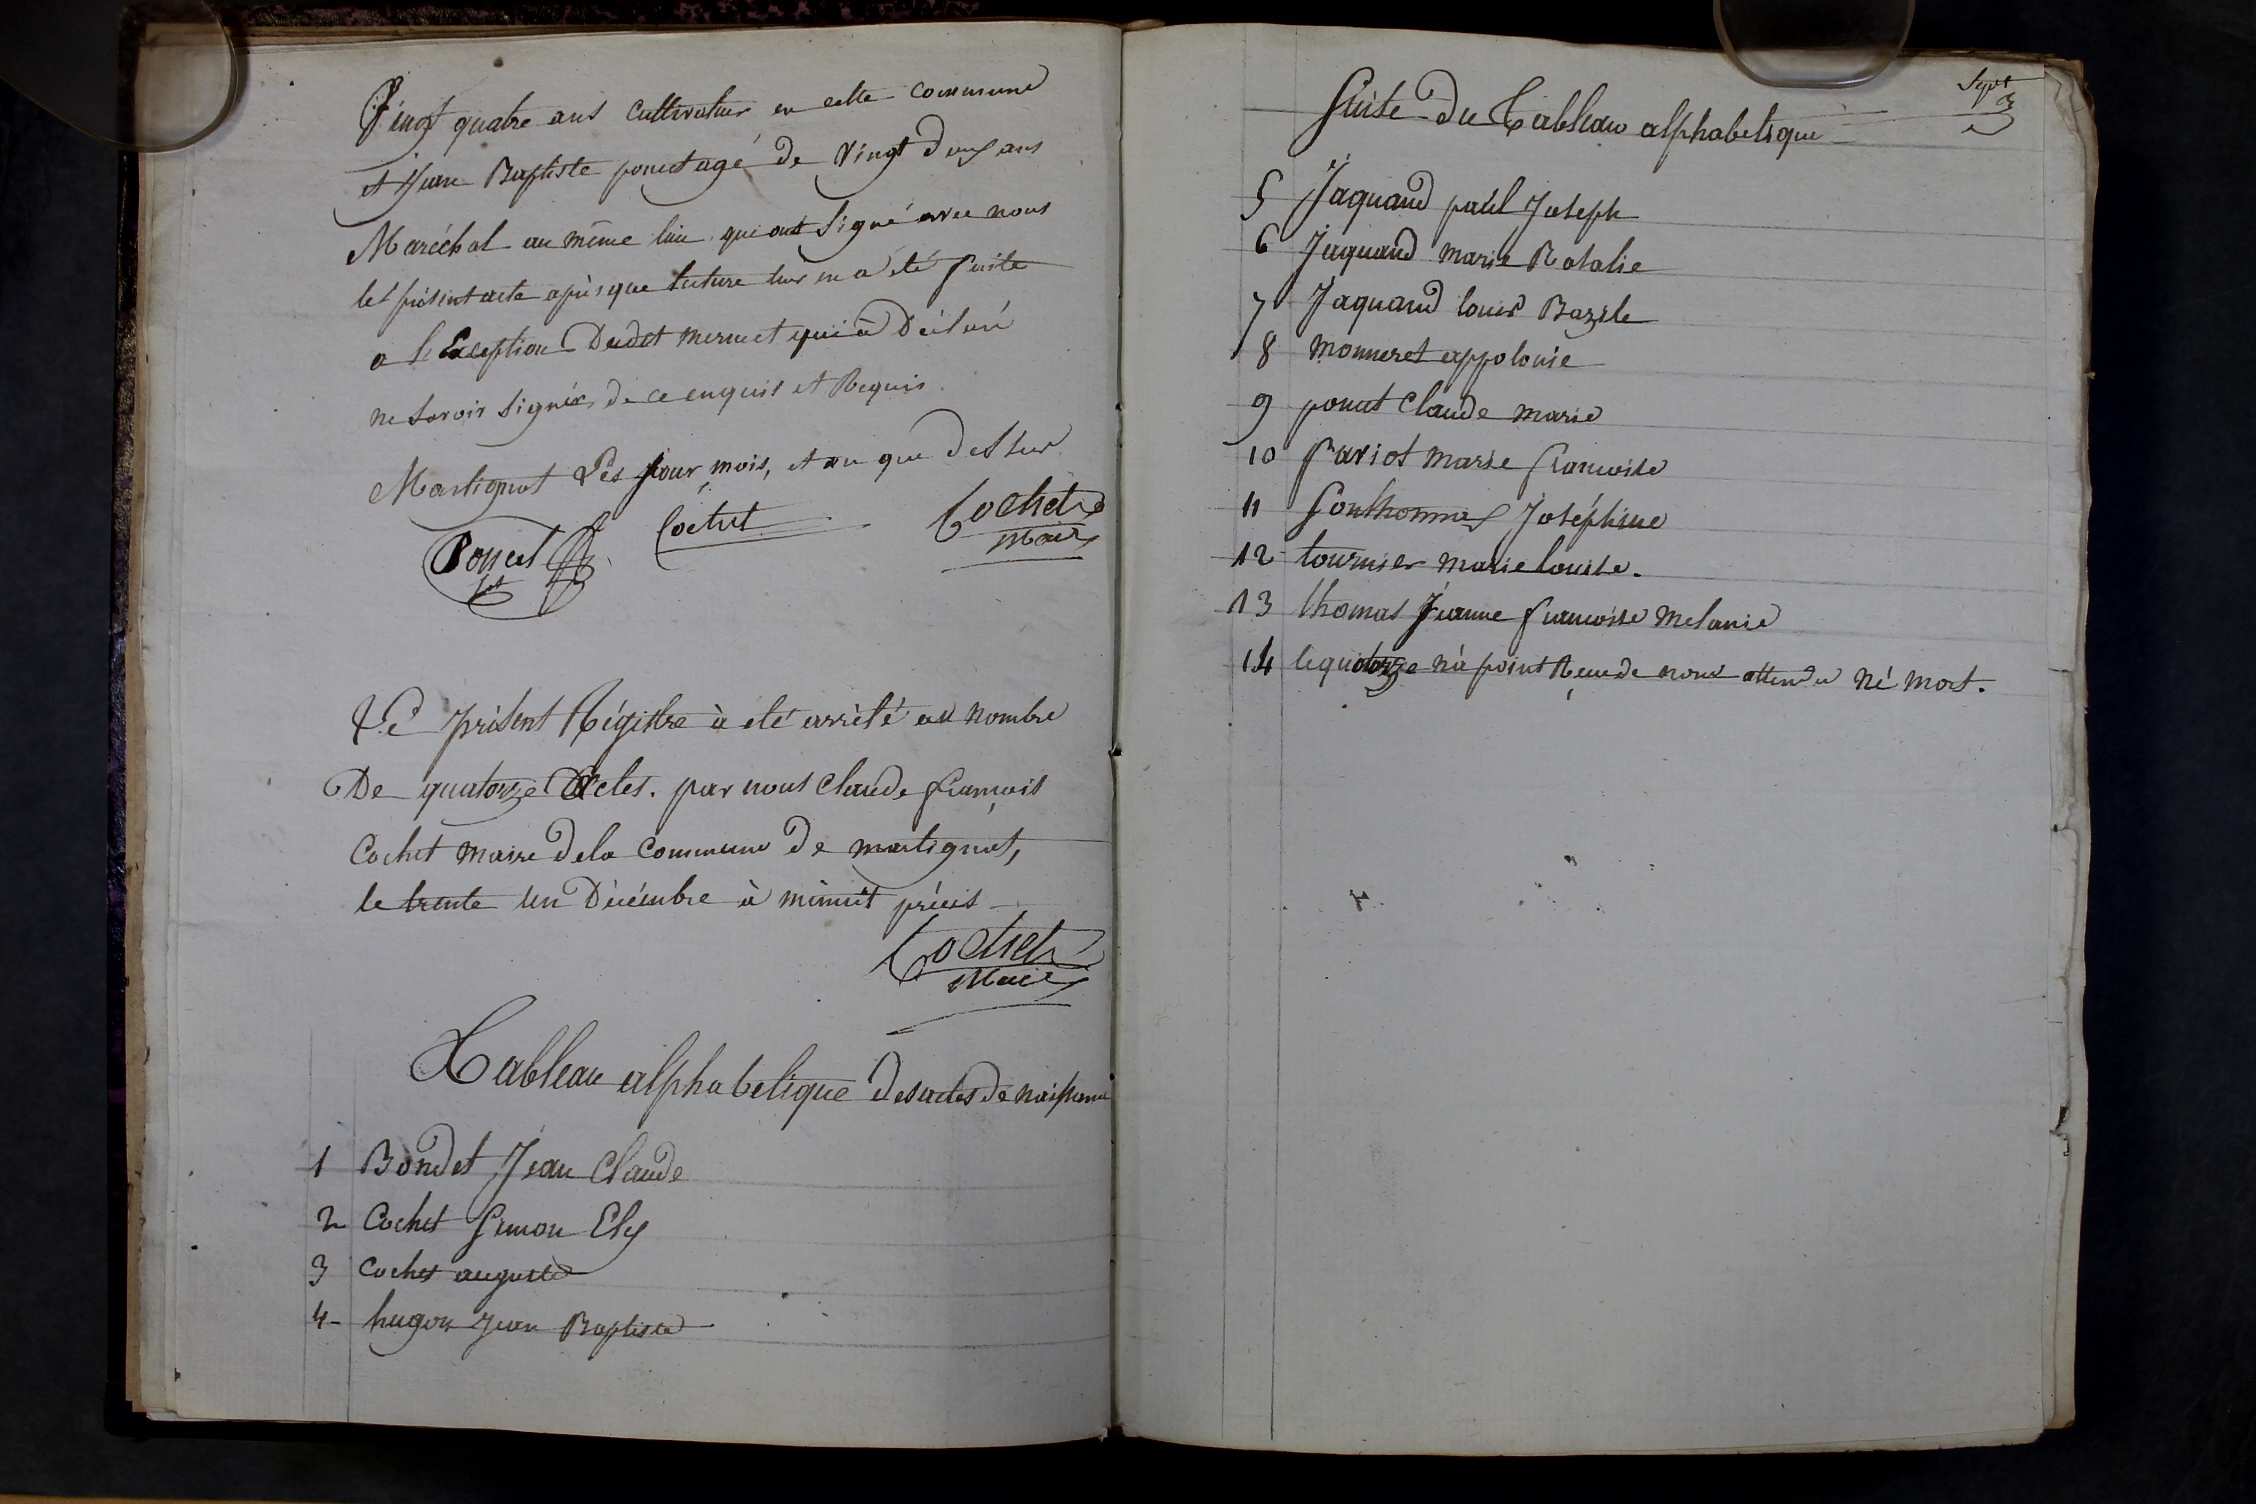 Vingt quatre ans cultivateur en cette commune
et Jean Baptiste poncet agé de Vingt deux ans
Maréchal au même lieu qui ont Signé avec nous
le présent acte après que lecture leur en a été faite
a l'Exception Dudit mermet qui à Déclaré
ne Savoir Signér de ce enquis et Requis.
Martignat Les jour, mois, et an que dessus
Poncet
Cochet
Cochet
Maire
Le présent Régistre à eté arrèté au nombre
De quatorze Actes. par nous Claude francois
Cochet maire de la Commune De martignat,
le trente un Décémbre à minuit précis
Cochet
Maire
Tableau alphabetique des actes de naissance
1 Bondet Jean Claude
2 Cochet Simon Ely
3 Cochet auguste
4 hugon Jean Baptiste
Sept
Suite du Tableau alphabetique
5 Jaquand paul Joseph
6 Jaquand marie Rosalie
7 Jaquand louis Bazile
8 monneret appolonie
9 poncet Claude marie
10 Pariot marie francoise
11 Josephine
12 tournier marie louise.
13 thomas Jeanne francoise melanie
14 le quatorze n'à point Reçu de nom attendu Né mort.